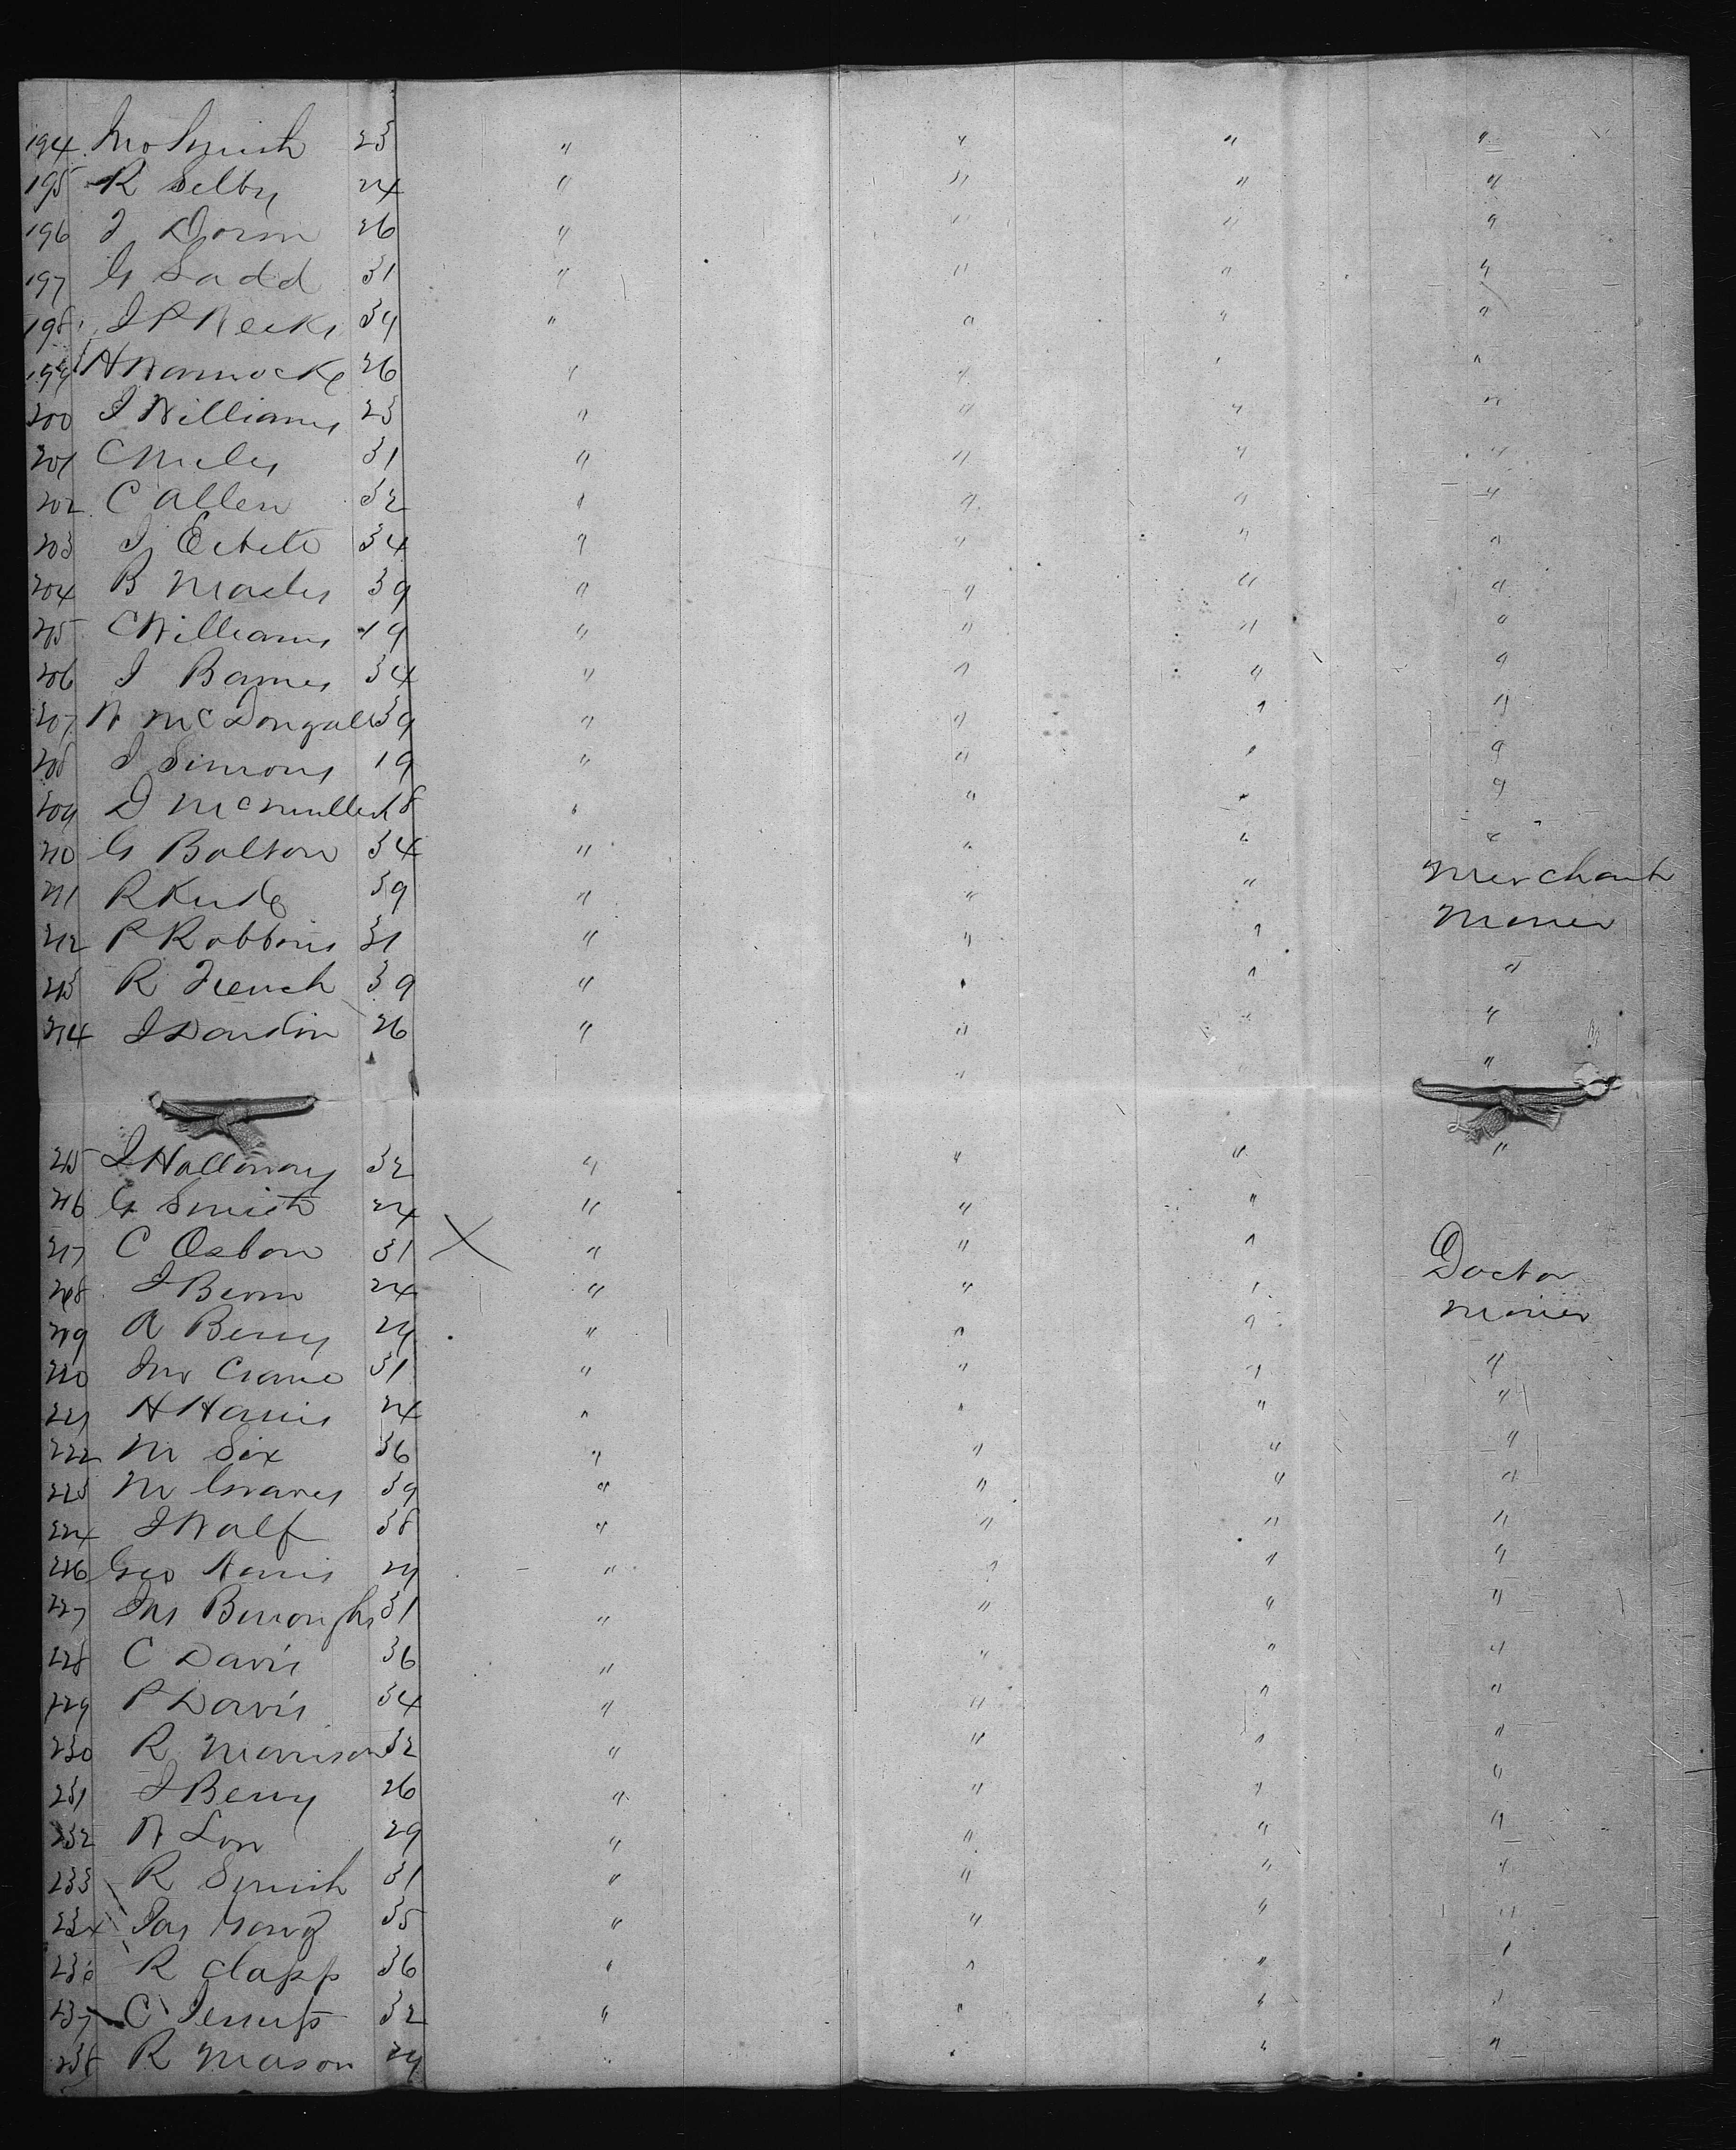 194 Jno Smith 23 " " " "
195 R Selby 24 " " " "
196 J Dorm 26 " " " "
197 G Ladd 31 " " " "
198 J P Weeks 34 " " " "
199 H Warnock 26 " " " "
200 J Williams 23 " " " "
201 C Miles 31 " " " "
202 C Allen 32 " " " "
203 J 34 " " " "
204 B 39 " " " "
205 C Williams 19 " " " "
206 J Barnes 34 " " " "
207 W McDongall 39 " " " "
208 J Simons 19 " " " "
209 D McMullen 18 " " " "
210 G Bolton 34 " " " "
211 R 39 " " " Merchant
212 P Robbins 31 " " " Minor
213 R French 39 " " " "
214 J 26 " " " "
" "
215 J Holloway 32 " " " "
216 G Smith 24 " " "
217 C Osborn 31 X " " " Doctor
218 J 24 " " " Minor
219 A Berry 24 " " "
220 Jno Crane 31 " " " "
221 H Harris 24 " " " "
222 M Six 36 " " " "
223 M Graves 39 " " " "
224 J Wolf 38 " " " "
226 Geo Harris 24 " " " "
227 Jas Burroughs 31 " " " "
228 C Davis 36 " " " "
229 P Davis 34 " " " "
230 R Morrison 32 " " " "
231 J Berry 26 " " " "
232 W Lon 29 " " " "
233 R Smith 31 " " " "
234 Jas 35 " " " "
236 R Clapp 36 " " " "
237 C 32 " " " "
238 R Mason 24 " " "